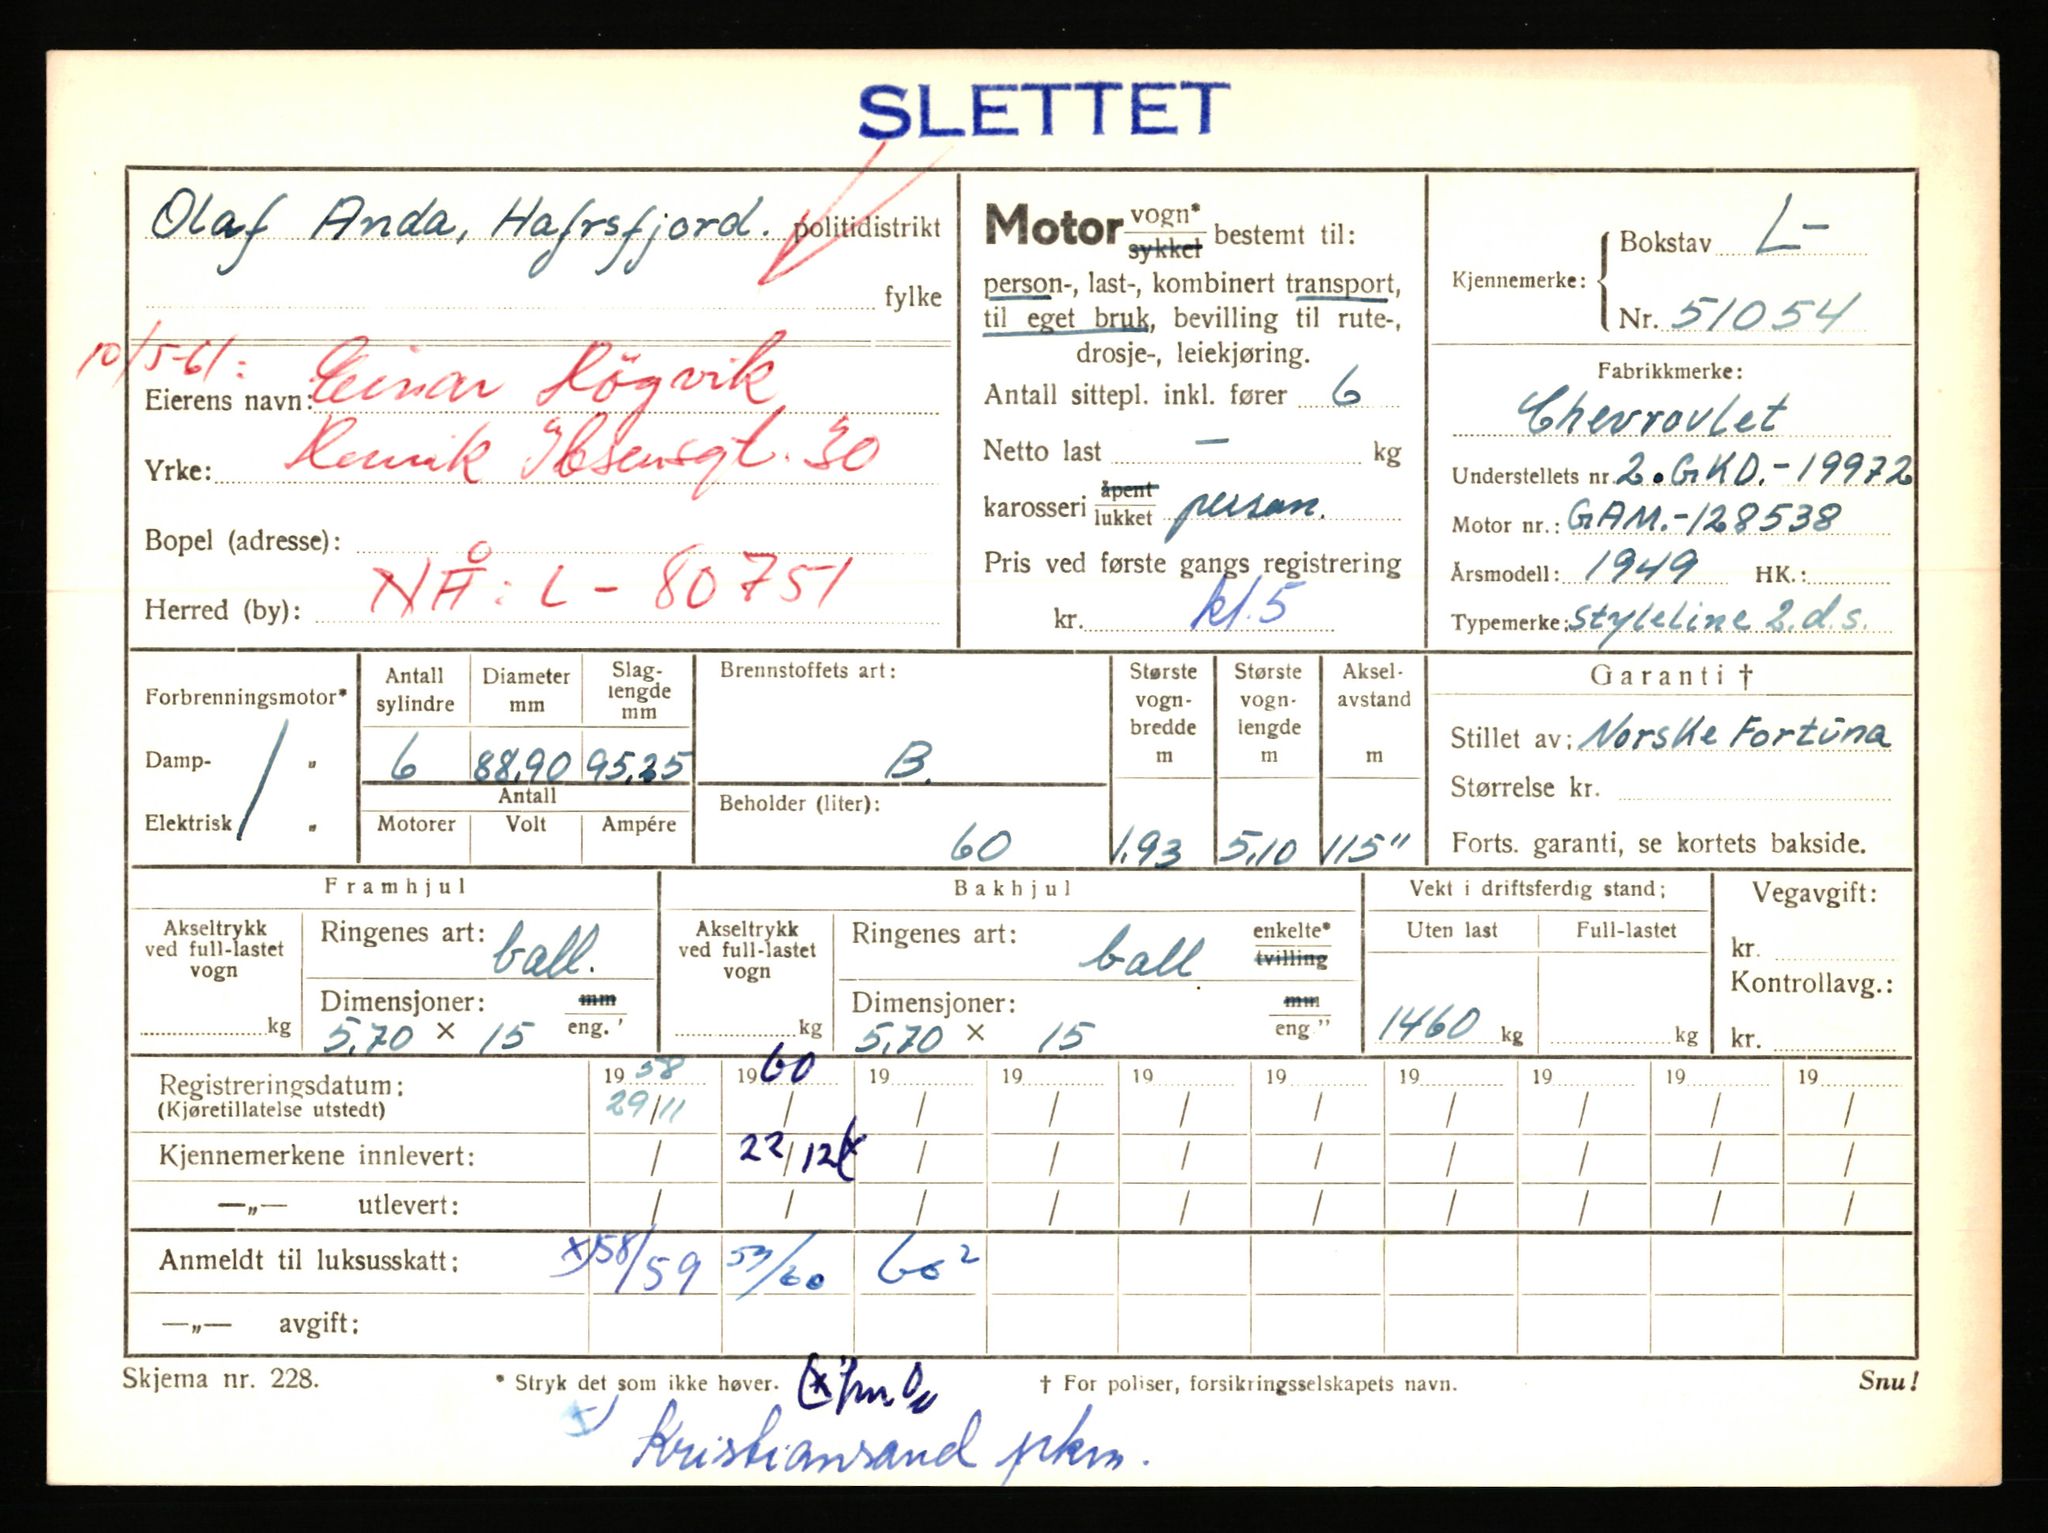 SLETTET
Olaf Anda, Hafrsfjord. politidistrikt
fylke
10/5-61: Einar Högvik
Eierens navn:
Henrik Ibsensgt. 30
Yrke:
Bopel (adresse):
NÅ: L - 80751
Herred (by):
Motor vogn* sykkel bestemt til:
person-, last-, kombinert transport,
til eget bruk, bevilling til rute-,
drosje-, leiekjøring.
Antall sittepl. inkl. fører 6
Netto last — kg
karosseri åpent lukket person.
Pris ved første gangs registrering
kr. kl. 5
Kjennemerke: Bokstav L-
Nr. 51054
Fabrikkmerke:
Chevrovlet
Understellets nr. 2.GKD.-19972
Motor nr.: GAM.-128538
Årsmodell: 1949 HK.:
Typemerke: styleline 2.d.s.
Forbrenningsmotor*
Damp- "
Elektrisk "
Antall sylindre
6
Diameter mm
88,90
Slaglengde mm
95,25
Antall
Motorer Volt Ampére
Brennstoffets art:
B.
Beholder (liter):
60
Største vogn-bredde m
1,93
Største vogn-lengde m
5,10
Aksel-avstand m
115"
Garanti †
Stillet av: Norske Fortuna
Størrelse kr.
Forts. garanti, se kortets bakside.
Framhjul
Akseltrykk ved full-lastet vogn
kg
Ringenes art: ball.
Dimensjoner: mm
5,70 × 15 eng. '
Bakhjul
Akseltrykk ved full-lastet vogn
kg
Ringenes art: ball enkelte* tvilling
Dimensjoner: mm
5,70 × 15 eng "
Vekt i driftsferdig stand;
Uten last Full-lastet
1460 kg kg
Vegavgift:
kr.
Kontrollavg.:
kr.
Registreringsdatum: 1958 1960 19 19 19 19 19 19 19 19
(Kjøretillatelse utstedt) 29/11 / / / / / / / / /
Kjennemerkene innlevert: / 22/12 / / / / / / / /
—„— utlevert: / / / / / / / / / /
Anmeldt til luksusskatt: x) 58/59 59/60 60²
—„— avgift:
Skjema nr. 228. * Stryk det som ikke høver. † For poliser, forsikringsselskapets navn. Snu!
x) Kristiansand pkm.